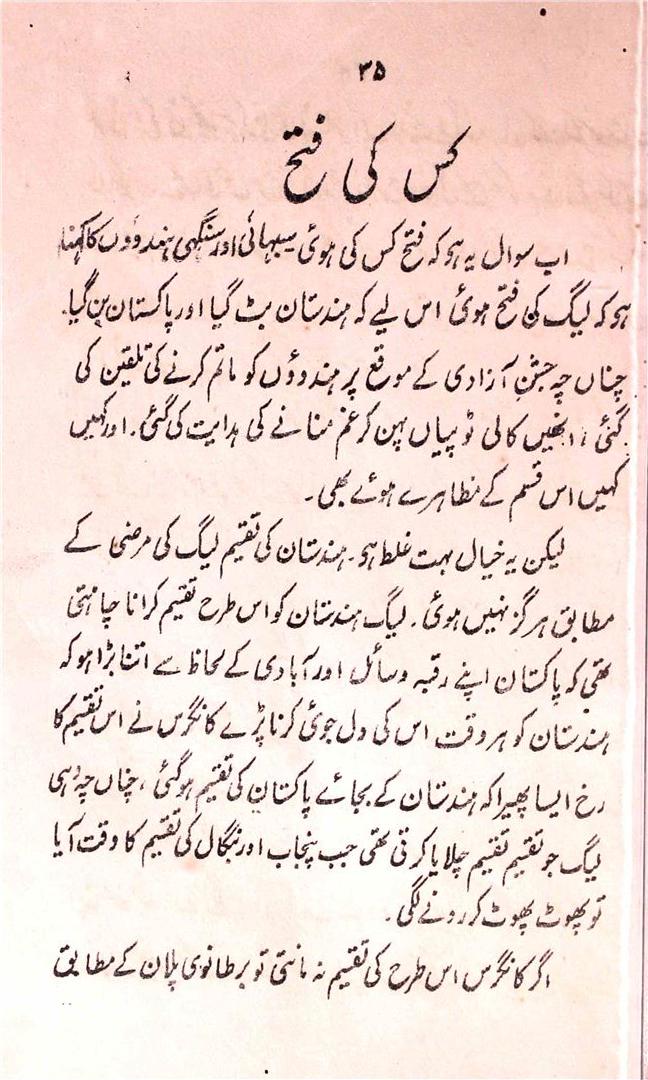 ۳۵
کس کی فتح
اب سوال یہ ہو کہ فتح کس کی ہوئی سبھائی اور سنگھی ہندوؤں کا کہنا
ہو کہ لیگ کی فتح ہوئی اس لیے کہ ہندستان بٹ گیا اور پاکستان بن گیا۔
چناں چہ جشنِ آزادی کے موقع پر ہندوؤں کو ماتم کرنے کی تلقین کی
گئی، انھیں کالی ٹوپیاں پہن کر غم منانے کی ہدایت کی گئی۔ اور کہیں
کہیں اس قسم کے مظاہرے ہوئے بھی۔
لیکن یہ خیال بہت غلط ہو۔ ہندستان کی تقیم لیگ کی مرضی کے
مطابق ہرگز نہیں ہوئی۔ لیگ ہندستان کو اس طرح تقیم کرانا چاہتی
تھی کہ پاکستان اپنے رقبہ وسائل اور آبادی کے لحاظ سے اتنا بڑا ہو کہ
ہندستان کو ہر وقت اس کی دل جوئی کرنا پڑے کانگرس نے اس تقیم کا
رخ ایسا پھیرا کہ ہندستان کے بجائے پاکستان کی تقیم ہوگئی، چناں چہ وہی
لیگ جو تقیم تقیم چلایا کرتی تھی جب پنجاب اور بنگال کی تقیم کا وقت آیا
تو پھوٹ پھوٹ کر رونے لگی۔
اگر کانگرس اس طرح کی تقیم نہ مانتی تو برطانوی پلان کے مطابق